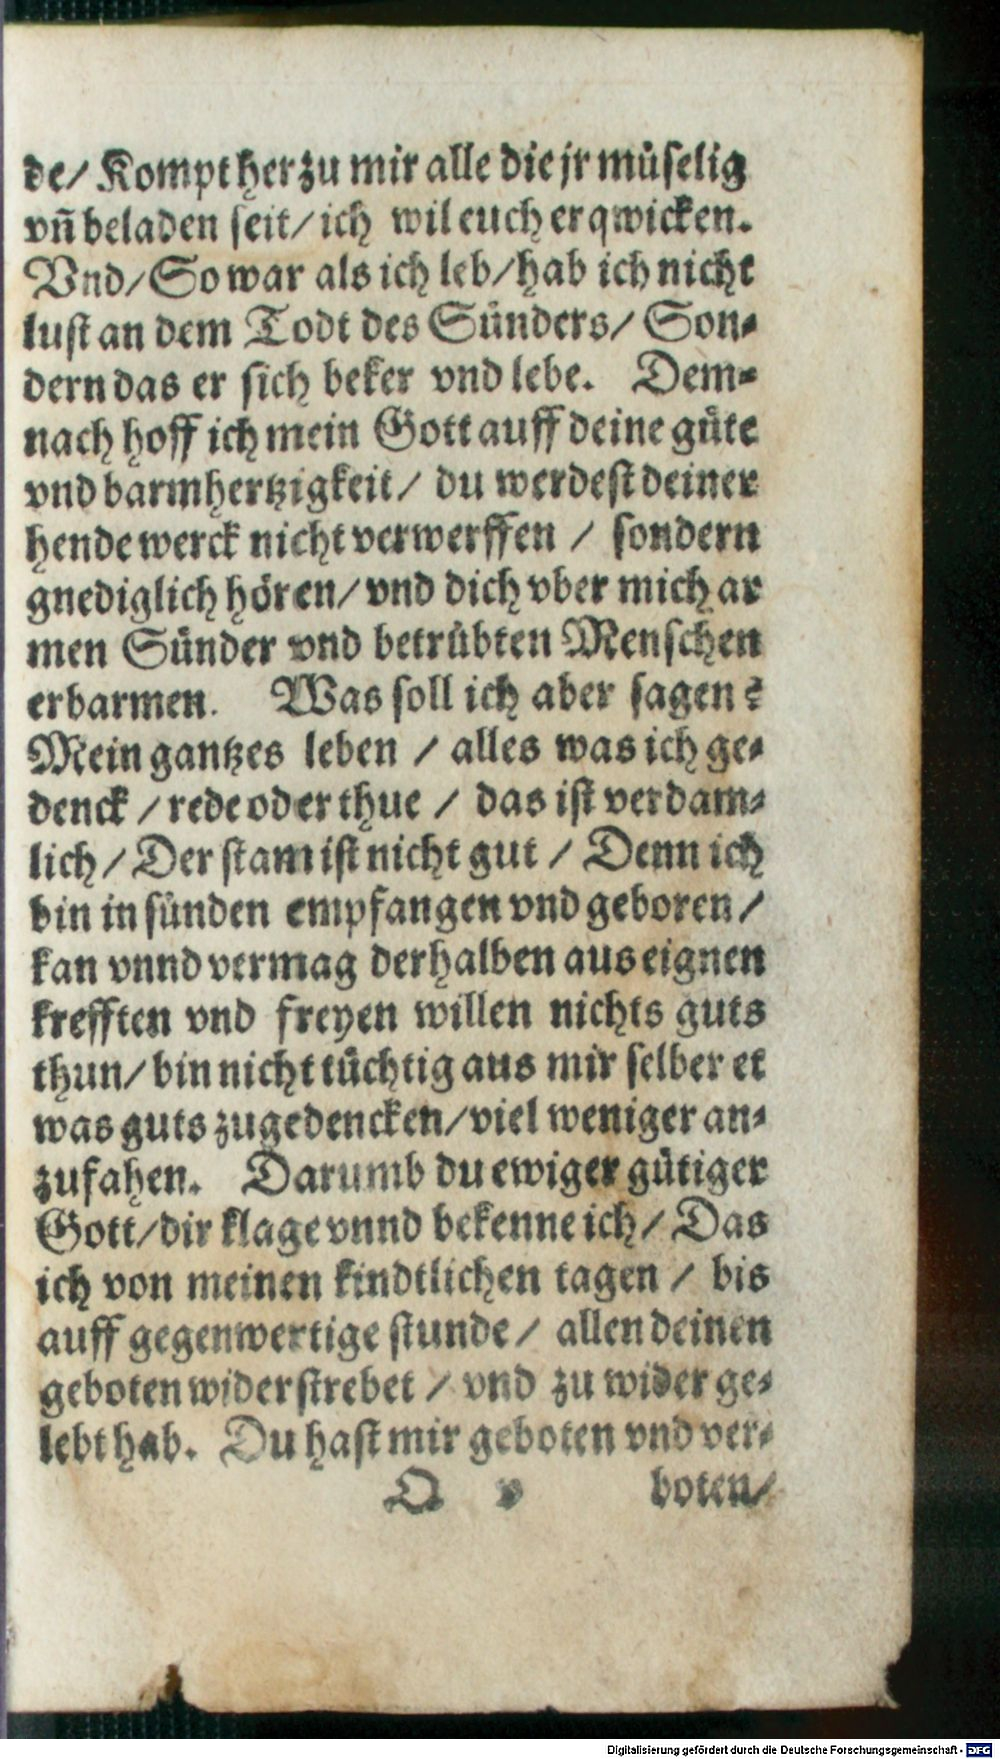 de/ Kompt her zu mir alle die jr müselig
vñ beladen seit/ ich wil euch erqwicken.
Vnd/ So war als ich leb/ hab ich nicht
lust an dem Todt des Sünders/ Son-
dern das er sich beker vnd lebe. Dem-
nach hoff ich mein Gott auff deine güte
vnd barmhertzigkeit/ du werdest deiner
hende werck nicht verwerffen / sondern
gnediglich hören/ vnd dich vber mich ar
men Sünder vnd betrübten Menschen
erbarmen. Was soll ich aber sagen?
Mein gantzes leben / alles was ich ge-
denck / rede oder thue / das ist verdam-
lich/ Der stam ist nicht gut / Denn ich
bin in sünden empfangen vnd geboren/
kan vnnd vermag derhalben aus eignen
krefften vnd freyen willen nichts guts
thun/ bin nicht tüchtig aus mir selber et
was guts zugedencken/ viel weniger an-
zufahen. Darumb du ewiger gütiger
Gott/ dir klage vnnd bekenne ich/ Das
ich von meinen kindtlichen tagen / bis
auff gegenwertige stunde/ allen deinen
geboten widerstrebet / vnd zu wider ge-
lebt hab. Du hast mir geboten vnd ver-
O v boten/
Digitalisierung gefördert durch die Deutsche Forschungsgemeinschaft - DFG